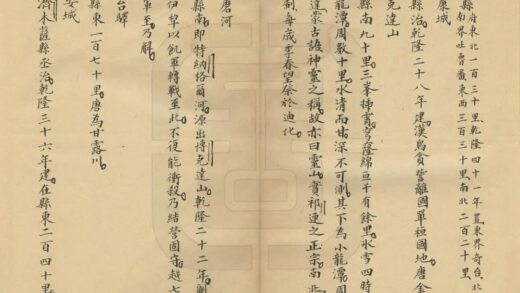 縣府東北一百三十里乾隆四十一年置東界奇臺北
南界吐魯番東西三百三十里南北二百二十里
康城
縣治乾隆二十八年建漢烏貪訾離國單桓國地唐金
克達山
縣南九十里三峯插霄穹窿綿亘千有餘里冰雪四時
龍潭周數十里水清而甘深不可測其下為小龍潭周
達蒙古語神靈之稱故亦曰靈山實祁連之正宗南北
制每歲季春望祭於迪化
磨河
縣南即特納格爾河源出博克達山乾隆二十二年副
伊犂以飢軍轉戰至此不復能衝殺乃結營固守越七
軍至乃解
台驛
縣東一百七十里唐為甘露川
安城
濟木薩縣丞治乾隆三十六年建在縣東二百四十里